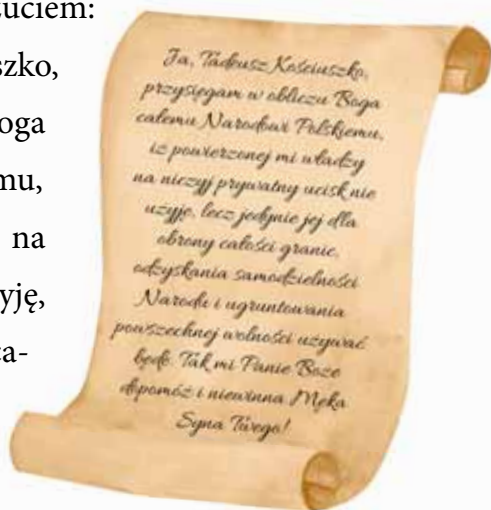 zuciem:
szko,
oga
mu,
na
yję,
ta-
Ja, Tadeusz Kościuszko,
przysięgam w obliczu Boga
całemu Narodowi Polskiemu,
iż powierzonej mi władzy
na niczyj prywatny ucisk nie
użyję, lecz jedynie jej dla
obrony całości granic,
odzyskania samodzielności
Narodu i ugruntowania
powszechnej wolności używać
będę. Tak mi Panie Boże
dopomóż i niewinna Męka
Syna Twego!